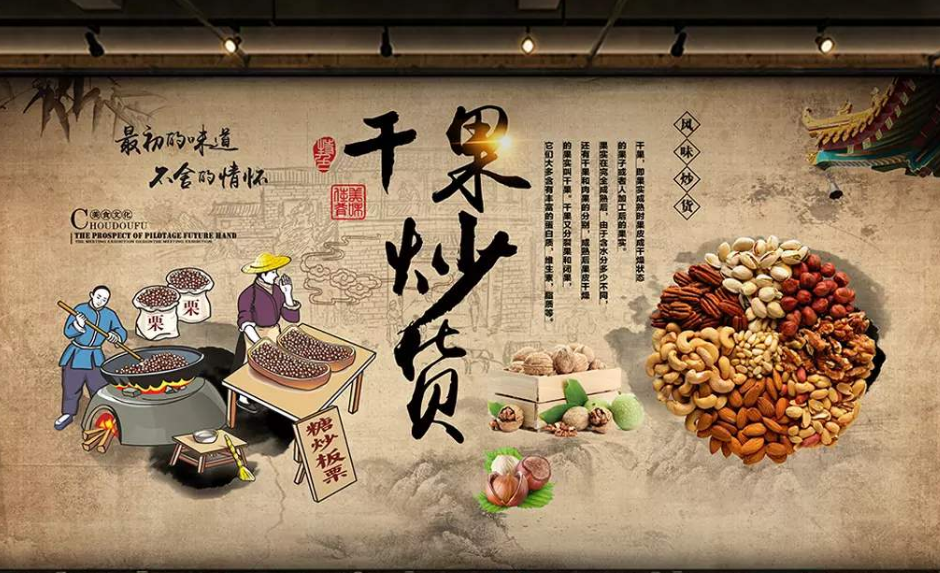 最初的味道
不舍的情怀
美食文化
CHOUDOUFU
THE PROSPECT OF PILOTAGE FUTURE HAND
干果
炒货
美味
佳肴
风味炒货
干果，即果实成熟时果皮成干燥状态
的果子或者人加工后的果实。
果实在完全成熟后，由于含水分多少不同，
还有干果和肉果的分别，成熟后果皮干燥
的果实叫干果。干果又分裂果和闭果，
它们大多含有丰富的蛋白质，维生素，脂质等。
栗
栗
糖炒板栗